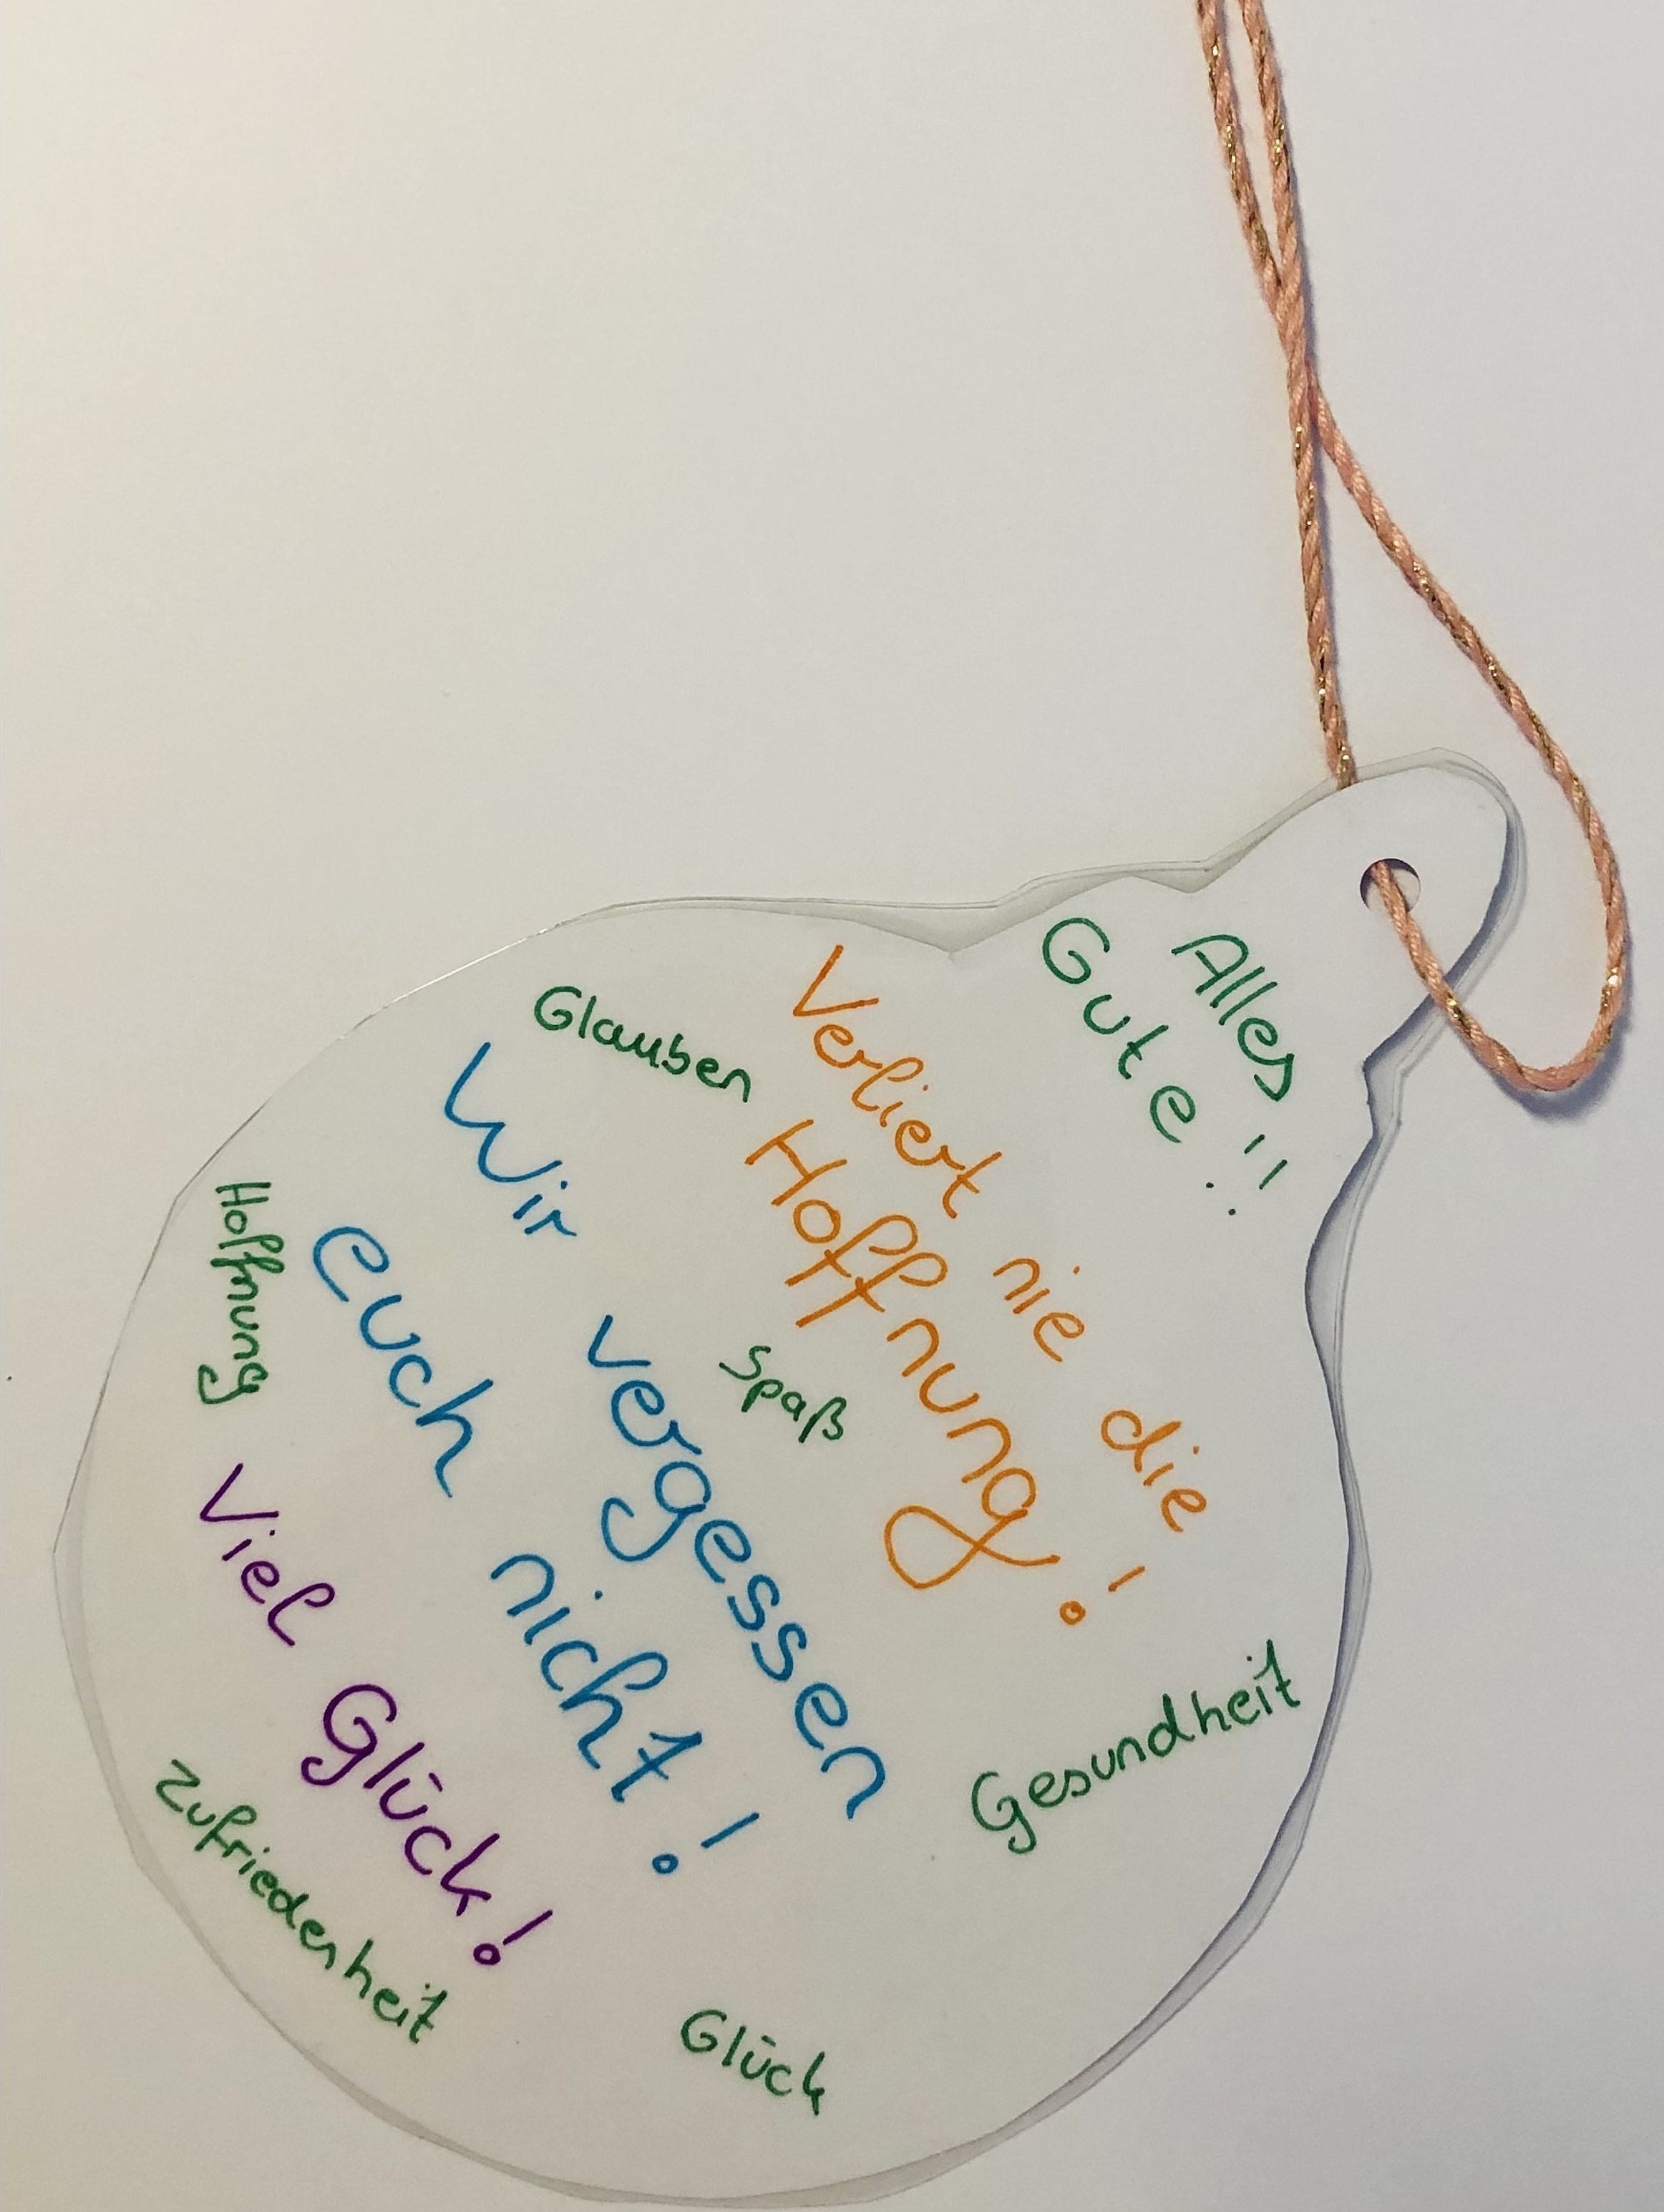 Alles
Gute!!
Verliert nie die
Hoffnung!
Glauben
Spaß
Wir vergessen
euch nicht!
Gesundheit
Hoffnung
Viel Glück!
Zufriedenheit
Glück